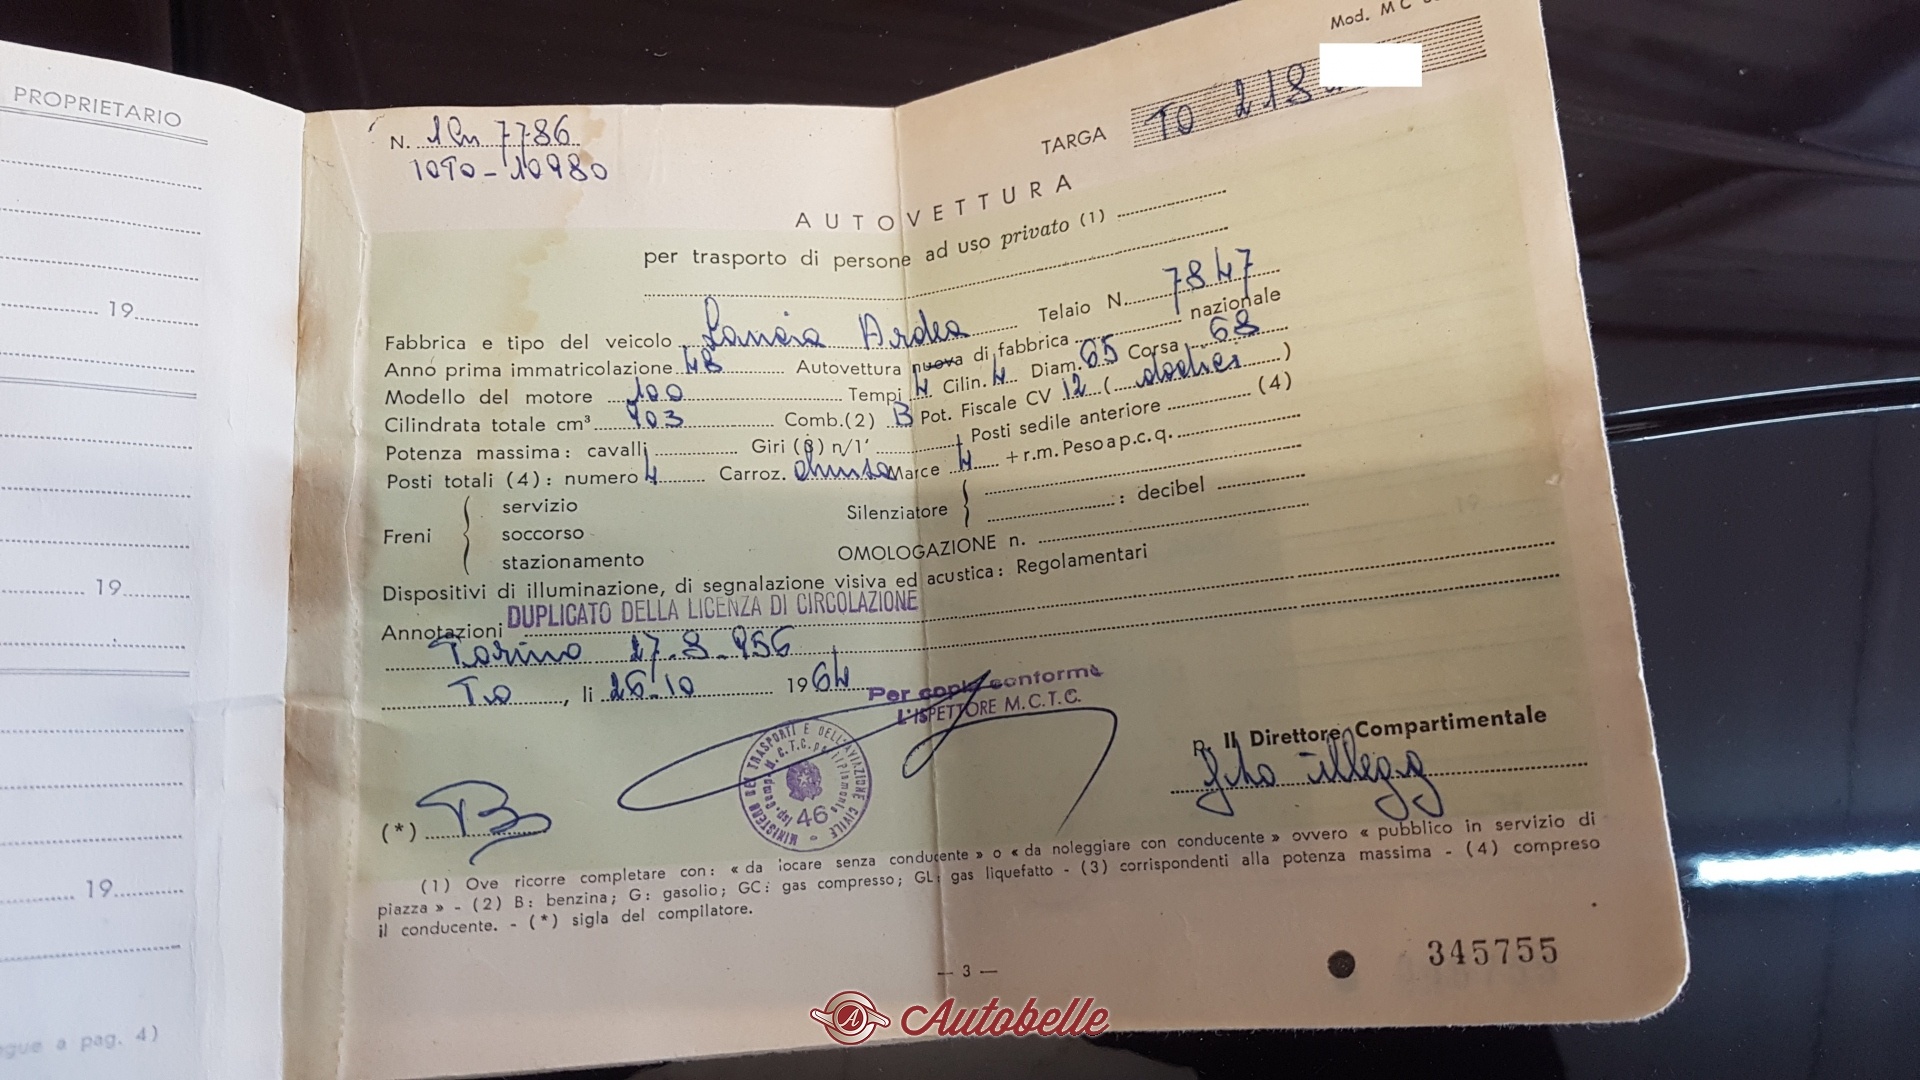 PROPRIETARIO
19
19
19
gue a pag. 4)
Mod. MC
N. 7786
1090-10980
TARGA TO 218
AUTOVETTURA
per trasporto di persone ad uso privato (1)
Fabbrica e tipo del veicolo Lancia Ardea Telaio N. 7847
Anno prima immatricolazione 48 Autovettura nuova di fabbrica nazionale
Modello del motore 100 Tempi 4 Cilin. 4 Diam. 65 Corsa 68
Cilindrata totale cm³ 903 Comb.(2) B Pot. Fiscale CV 12 (dodici)
Potenza massima: cavalli Giri (3) n/1' Posti sedile anteriore (4)
Posti totali (4): numero 4 Carroz. chiusa Marce 4 + r.m. Peso a p.c.q.
Freni { servizio
soccorso
stazionamento
Silenziatore { : decibel
OMOLOGAZIONE n.
Dispositivi di illuminazione, di segnalazione visiva ed acustica: Regolamentari
Annotazioni DUPLICATO DELLA LICENZA DI CIRCOLAZIONE
Torino 27.8.956
To, li 26.10 1964
Per copia conforme
L'ISPETTORE M.C.T.C.
MINISTERO DEI TRASPORTI E DELL'AVIAZIONE CIVILE
46
p. Il Direttore Compartimentale
f.to illegg
(*)
(1) Ove ricorre completare con: « da locare senza conducente » o « da noleggiare con conducente » ovvero « pubblico in servizio di
piazza » - (2) B: benzina; G: gasolio; GC: gas compresso; GL: gas liquefatto - (3) corrispondenti alla potenza massima - (4) compreso
il conducente. - (*) sigla del compilatore.
— 3 —
345755
Autobelle